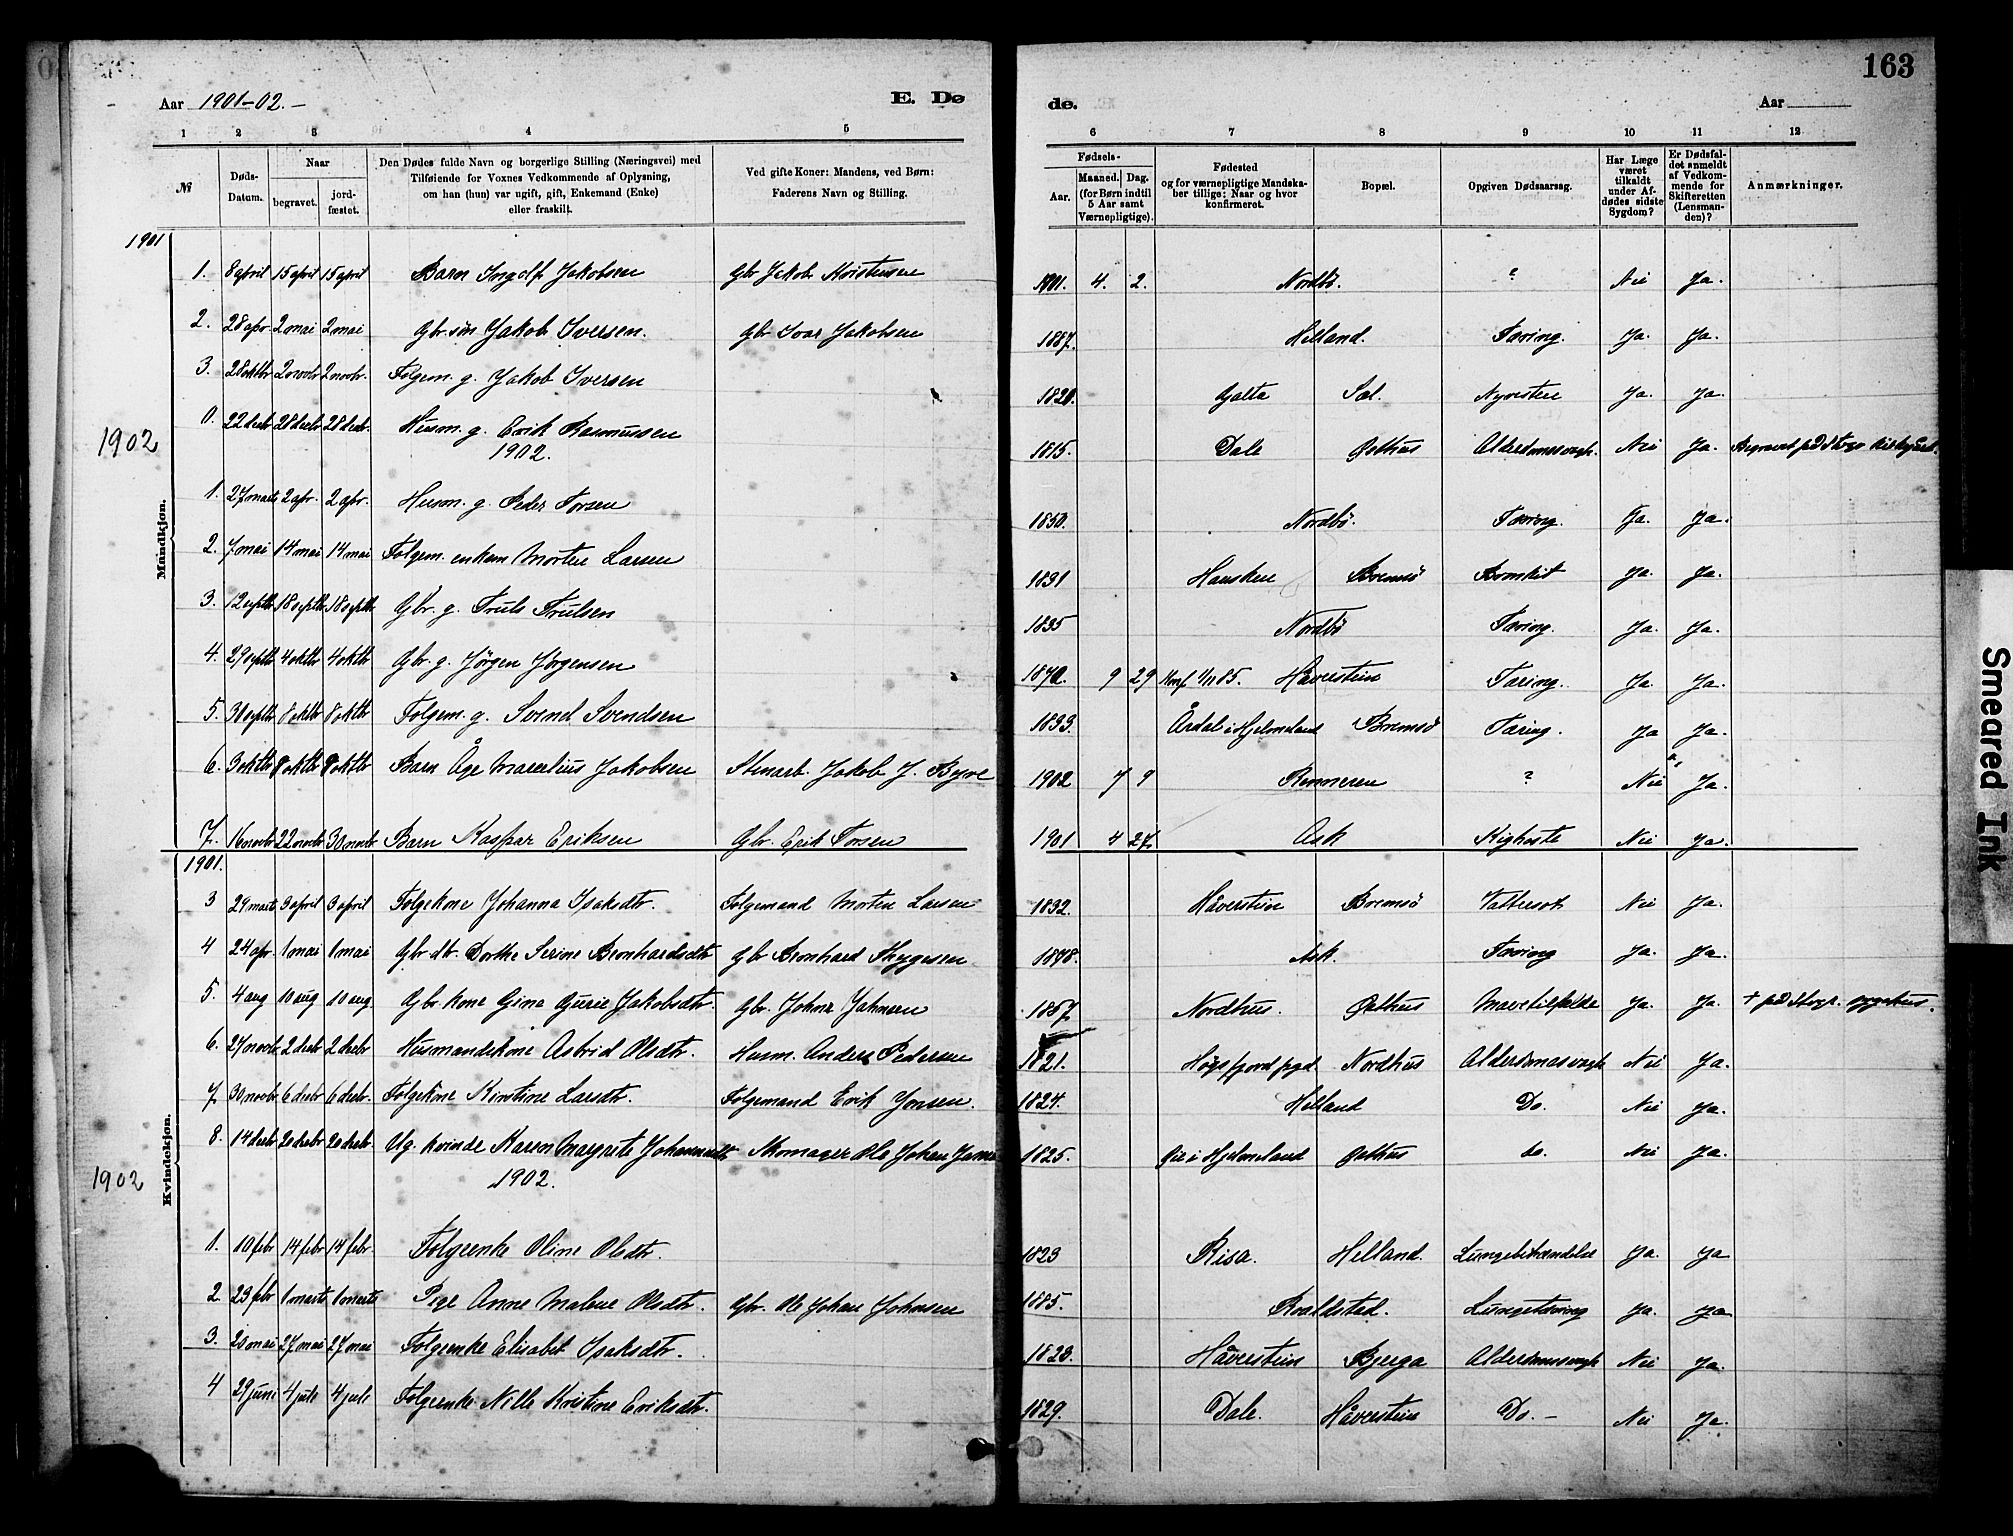 163
Aar 1901-02.- E. Dø de. Aar
1 2 3 4 5 6 7 8 9 10 11 12
№ Døds-Datum. Naar begravet. jord-fæstet. Den Dødes fulde Navn og borgerlige Stilling (Næringsvei) med Tilføiende for Voxnes Vedkommende af Oplysning, om han (hun) var ugift, gift, Enkemand (Enke) eller fraskilt. Ved gifte Koner: Mandens, ved Børn: Faderens Navn og Stilling. Fødsels- Aar. Maaned. Dag. (for Børn indtil 5 Aar samt Værnepligtige). Fødested og for værnepligtige Mandskaber tillige: Naar og hvor konfirmeret. Bopæl. Opgiven Dødsaarsag. Har Læge været tilkaldt under Afdødes sidste Sygdom? Er Dødsfaldet anmeldt af Vedkommende for Skifteretten (Lensmanden)? Anmærkninger.
Mandkjøn.
1901
1. 8 april 15 april 15 april Barn Ingolf Jakobsen Gbr Jakob 1901. 4. 2. Nordbö. ? Nei Ja.
2. 28 apr. 2 mai 2 mai Gbr. sön Jakob Iversen. Gbr Ivar Jakobsen 1887. Helland. Tæring. Ja. Ja.
3. 28 oktbr 2 novbr 2 novbr. Folgem. g. Jakob Iversen Galta Sel. Ja. Ja.
0. 22 decbr 28 decbr 28 decbr. Husm. g. Erik Rasmussen 1815. Dale Østhus Alderdomssvagh. Nei Ja.
1902 1902.
1. 27 marts 2 apr. 2 apr. Husm. g. Peder Torsen 1850. Nordbö. Tæring. Ja. Ja.
2. 7 mai 14 mai 14 mai Folgem. enkem Morten Larsen 1831 Hausken Bremsö Bronkit Ja. Ja.
3. 12 septbr 18 septbr 18 septbr. Gbr. g. Truls Trulsen 1835 Nordbö Tæring. Ja. Ja.
4. 29 septbr 4 oktbr 4 oktbr Gbr. g. Jörgen Jörgensen 9 29 Håverstein Tæring. Ja. Ja.
5. 30 septbr 8 oktbr 8 oktbr Folgem. g. Svend Svendsen 1833. Årdal i Hjelmeland Bremsö Tæring. Ja Ja.
6. 3 oktbr 8 oktbr 8 oktbr Barn Åge Marselius Jakobsen Stenarb. Jakob J. Byre 1902 7 9 Renneren ? Nei Ja.
7. 16 novbr 22 novbr 30 novbr Barn Kaspar Eriksen Gbr. Erik Torsen 1901 4 27 Ask Kighoste Nei Ja.
Kvindekjøn.
1901.
3 29 marts 3 april 3 april Folgekone Johanna Isaksdtr. Folgemand Morten Larsen 1832. Håverstein Bremsö Vattersot Nei Ja.
4 24 apr. 1 mai 1 mai Gbr dtr. Dorthe Serine Bernhardsdtr Gbr Bernhard Thygesen 1898. Ask. Tæring Ja. Ja.
5. 4 aug 10 aug 10 aug Gbr. kone Gina Gurie Jakobsdtr. Gbr. Johne Johnsen Nordhus. Østhus Mavetilfælde Ja. Ja. † på Stvgr. sygehus.
6. 27 novbr 2 decbr 2 decbr. Husmandskone Astrid Olsdtr. Husm. Anders Pedersen 1821. Høgsfjord pgd Nordhus Alderdomssvagh Nei Ja.
7. 30 novbr 6 decbr 6 decbr. Folgekone Kirstine Larsdtr. Folgemand Erik Jonsen. 1824. Helland Do. Nei Ja.
8. 14 decbr 20 decbr 20 decbr. Ug. kvinde Karen Margrete Johannesdtr Skomager Ole Johan 1825. i Hjelmeland Østhus do. Nei Ja.
1902 1902.
1. 10 febr 14 febr 14 febr. Folgeenke Oline Olsdtr. 1823 Risa. Helland. Lungebetændelse Ja. Ja
2. 23 febr 1 marts 1 marts Pige Anne Malene Olsdtr. Gbr. Ole Johan Johnsen 1885. Lungetæring Ja. Ja
3. 20 mai 27 mai 27 mai Folgeenke Elisabet Isaksdtr. 1828. Håverstein Bjerga Alderdomssvagh Nei Ja.
4 29 juni 4 juli 4 juli Folgeenke Nille Kristine Eriksdtr. 1829. Dale. Håverstein Do. - Nei Ja.
Smeared Ink